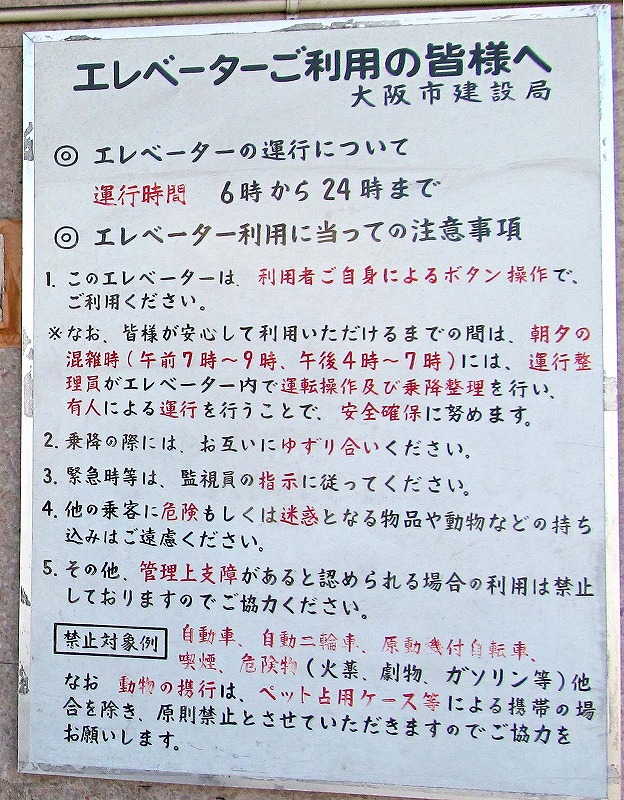 エレベーターご利用の皆様へ
大阪市建設局
◎ エレベーターの運行について
運行時間 6時から24時まで
◎ エレベーター利用に当っての注意事項
1. このエレベーターは、利用者ご自身によるボタン操作で、
ご利用ください。
※なお、皆様が安心して利用いただけるまでの間は、朝夕の
混雑時(午前7時〜9時、午後4時〜7時)には、運行整
理員がエレベーター内で運転操作及び乗降整理を行い、
有人による運行を行うことで、安全確保に努めます。
2. 乗降の際には、お互いにゆずり合いください。
3. 緊急時等は、監視員の指示に従ってください。
4. 他の乗客に危険もしくは迷惑となる物品や動物などの持ち
込みはご遠慮ください。
5. その他、管理上支障があると認められる場合の利用は禁止
しておりますのでご協力ください。
禁止対象例 自動車、自動二輪車、原動機付自転車、
喫煙、危険物(火薬、劇物、ガソリン等)他
なお 動物の携行は、ペット占用ケース等による携帯の場
合を除き、原則禁止とさせていただきますのでご協力を
お願いします。